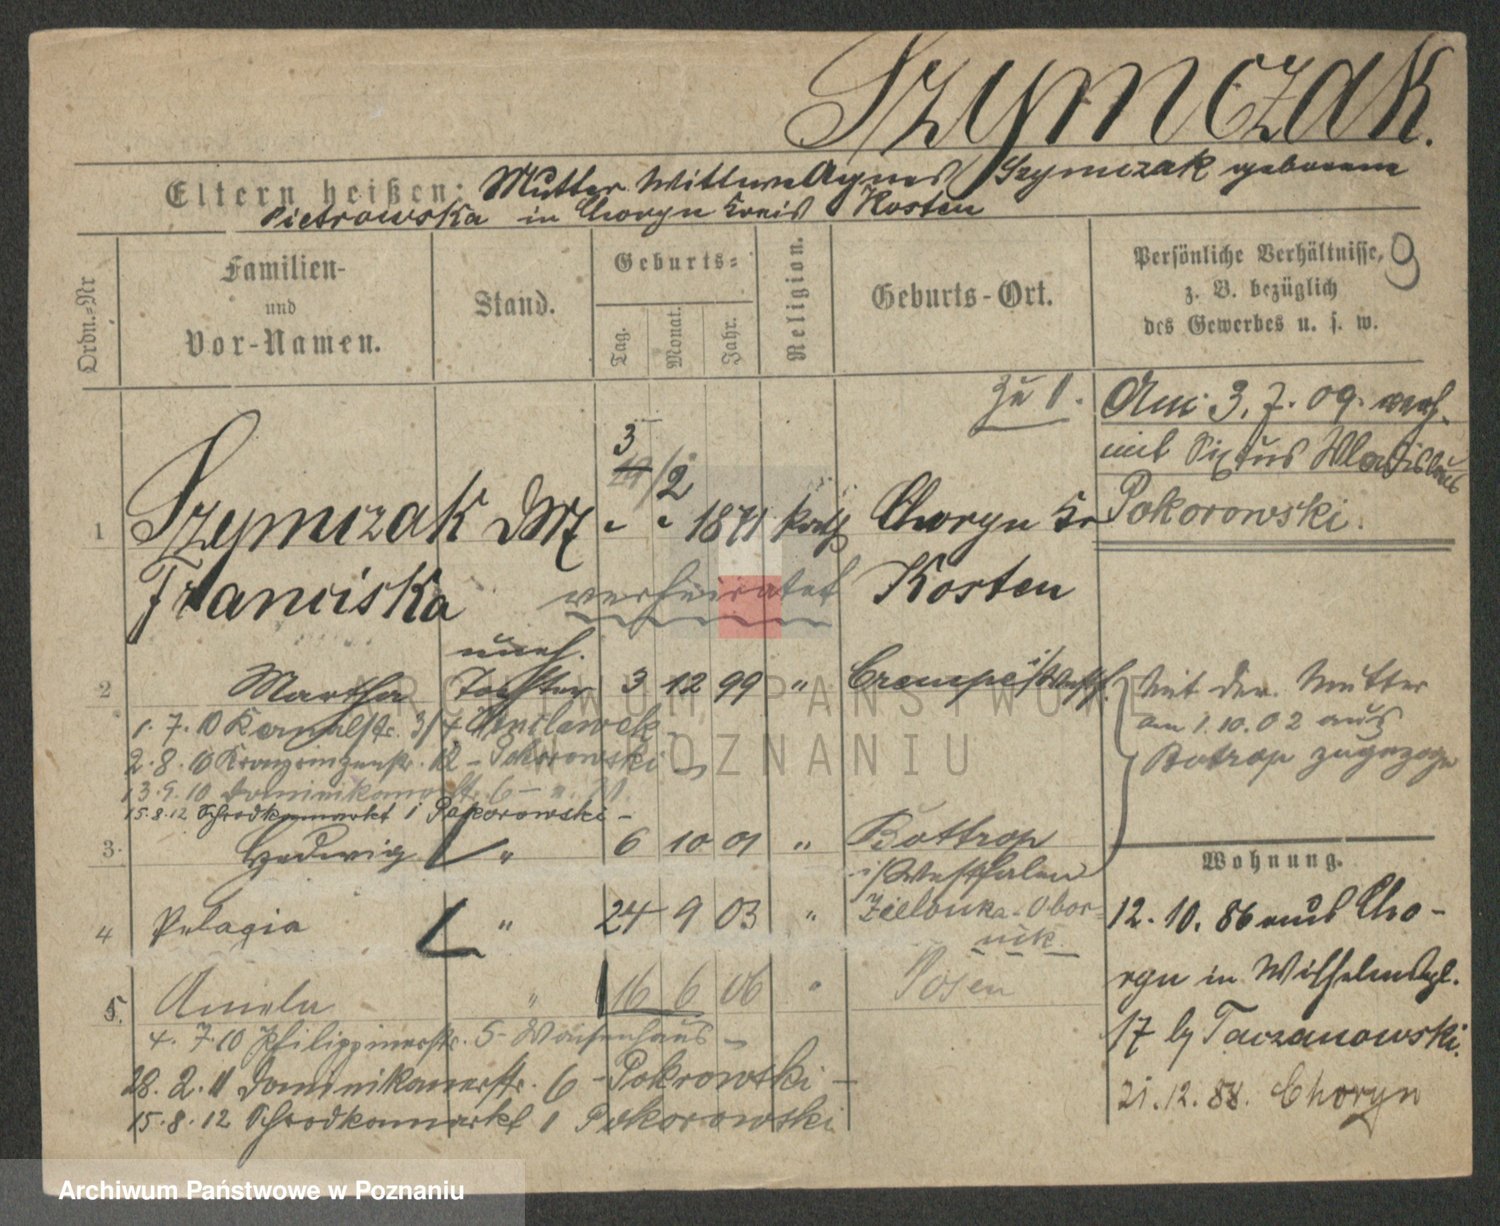 Szymczak.
Eltern heißen: Mutter Wittwe Agnes Szymczak geborene
Pietrowska in Choryn Kreis Kosten
Ordn.-Nr
Familien-
und
Vor-Namen.
Stand.
Geburts-
Tag.
Monat.
Jahr.
Religion.
Geburts-Ort.
Persönliche Verhältnisse,
z. B. bezüglich
des Gewerbes u. s. w.
9
zu 1.
Am 3. 7. 09. verh.
mit Sixtus Wladislaus
Pokorowski.
3
/2
1 Szymczak " " 1871 kath Choryn Kr
Franciska verheiratet Kosten
uneh.
2 Martha Tochter 3 12 99 "
Mit der Mutter
am 1.10.02 aus
Botrop zugezogen
1. 7. 10 3/4
2. 8. 10 12 - Pokorowski -
13. 9. 10 Dominikanerstr. 6 - "
15.8.12 Schrodkamarkt 1 Pokorowski -
3. Hedwig " 6 10 01 " Bottrop
i/Westfalen
4 Pelagia " 24 9 03 " Zielonka-Obor-
nik
5. Amela " 16 6 06 " Posen
4. 7. 10 Philippinerstr. 5 - Waisenhaus -
28. 2. 11 Dominikanerstr. 6 - Pokrowski -
15. 8. 12 Schrodkamarkt 1 Pokorowski
Wohnung.
12. 10. 86 aus Cho-
ryn in Wilhelmspl.
17 by Taczanowski.
21. 12. 88. Choryn
ARCHIWUM PAŃSTWOWE
W POZNANIU
Archiwum Państwowe w Poznaniu